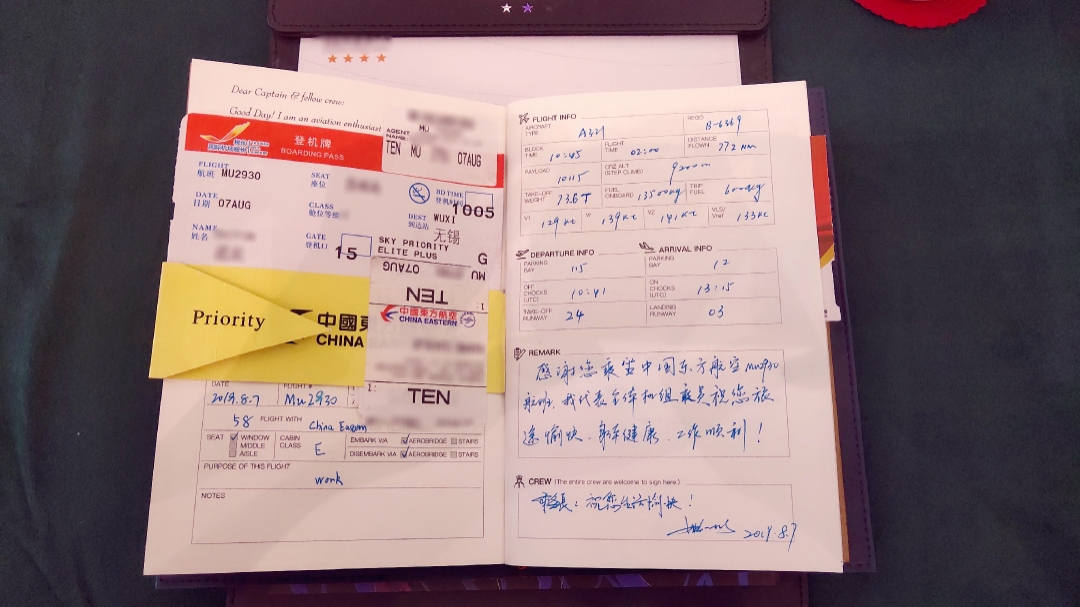 Dear Captain & fellow crew:
Good Day! I am an aviation enthusiast
登机牌
BOARDING PASS
AGENT
NAME:
MU
TEN MU 07AUG
FLIGHT
航班 MU2930
SEAT
座位
BD TIME
登机时间 1005
DATE
日期 07AUG
CLASS
舱位等级
DEST WUXI
到达站 无锡
NAME
姓名
GATE
登机口 15
SKY PRIORITY
ELITE PLUS G
07AUG MU
TEN
Priority
中國東
CHINA
中國東方航空
CHINA EASTERN
TEN
DATE FLIGHT #
2019.8.7 Mu2930
58 FLIGHT WITH China Eastern
SEAT WINDOW MIDDLE AISLE
CABIN CLASS E
EMBARK VIA AEROBRIDGE STAIRS
DISEMBARK VIA AEROBRIDGE STAIRS
PURPOSE OF THIS FLIGHT
work
NOTES
FLIGHT INFO
AIRCRAFT TYPE A321
REG B-6369
BLOCK TIME 10:45
FLIGHT TIME 02:00
DISTANCE FLOWN 772 NM
PAYLOAD 10115
CRZ ALT (STEP CLIMB) 9200m
TAKE-OFF WEIGHT 73.6T
FUEL ONBOARD 13500kg
TRIP FUEL 6000kg
V1 129 KT
VR 139 KT
V2 141 KT
VLS/Vref 133 KT
DEPARTURE INFO ARRIVAL INFO
PARKING BAY 115
PARKING BAY 12
OFF CHOCKS (UTC) 10:41
ON CHOCKS (UTC) 13:15
TAKE-OFF RUNWAY 24
LANDING RUNWAY 03
REMARK
感谢您乘坐中国东方航空MU2930
航班,我代表全体机组成员祝您旅
途愉快、身体健康、工作顺利!
CREW (The entire crew are welcome to sign here.)
乘务长:祝您生活愉快!
2019.8.7